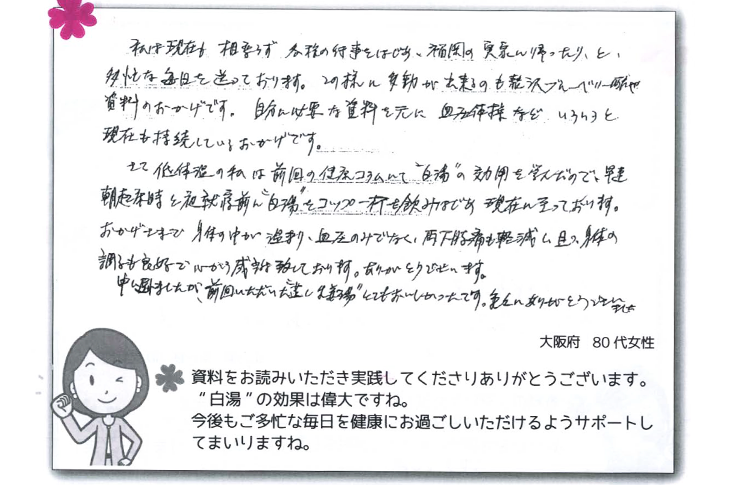 私は現在も相変らず各種の行事をはじめ、福岡の実家に帰ったり、と、
多忙な毎日を送っております。この様に多動が出来るのも贅沢ブルーベリー
資料のおかげです。自分に必要な資料を元に血圧体操などいろいろと
現在も持続しているおかげです。
さて低体温の私は前回の健康コラムにて"白湯"の効用を学んだので、早速
朝起床時と夜就寝前に"白湯"をコップ一杯を飲みはじめ現在に至っております。
おかげさまで身体の中が温まり、血圧のみでなく、両下肢痛も軽減し且つ、身体の
調子も良好で心から感謝致しております。ありがとうございます。
申し遅れましたが、前回いただいた とてもおいしかったです。ありがとうござい
大阪府 80代女性
資料をお読みいただき実践してくださりありがとうございます。
“白湯”の効果は偉大ですね。
今後もご多忙な毎日を健康にお過ごしいただけるようサポートし
てまいりますね。